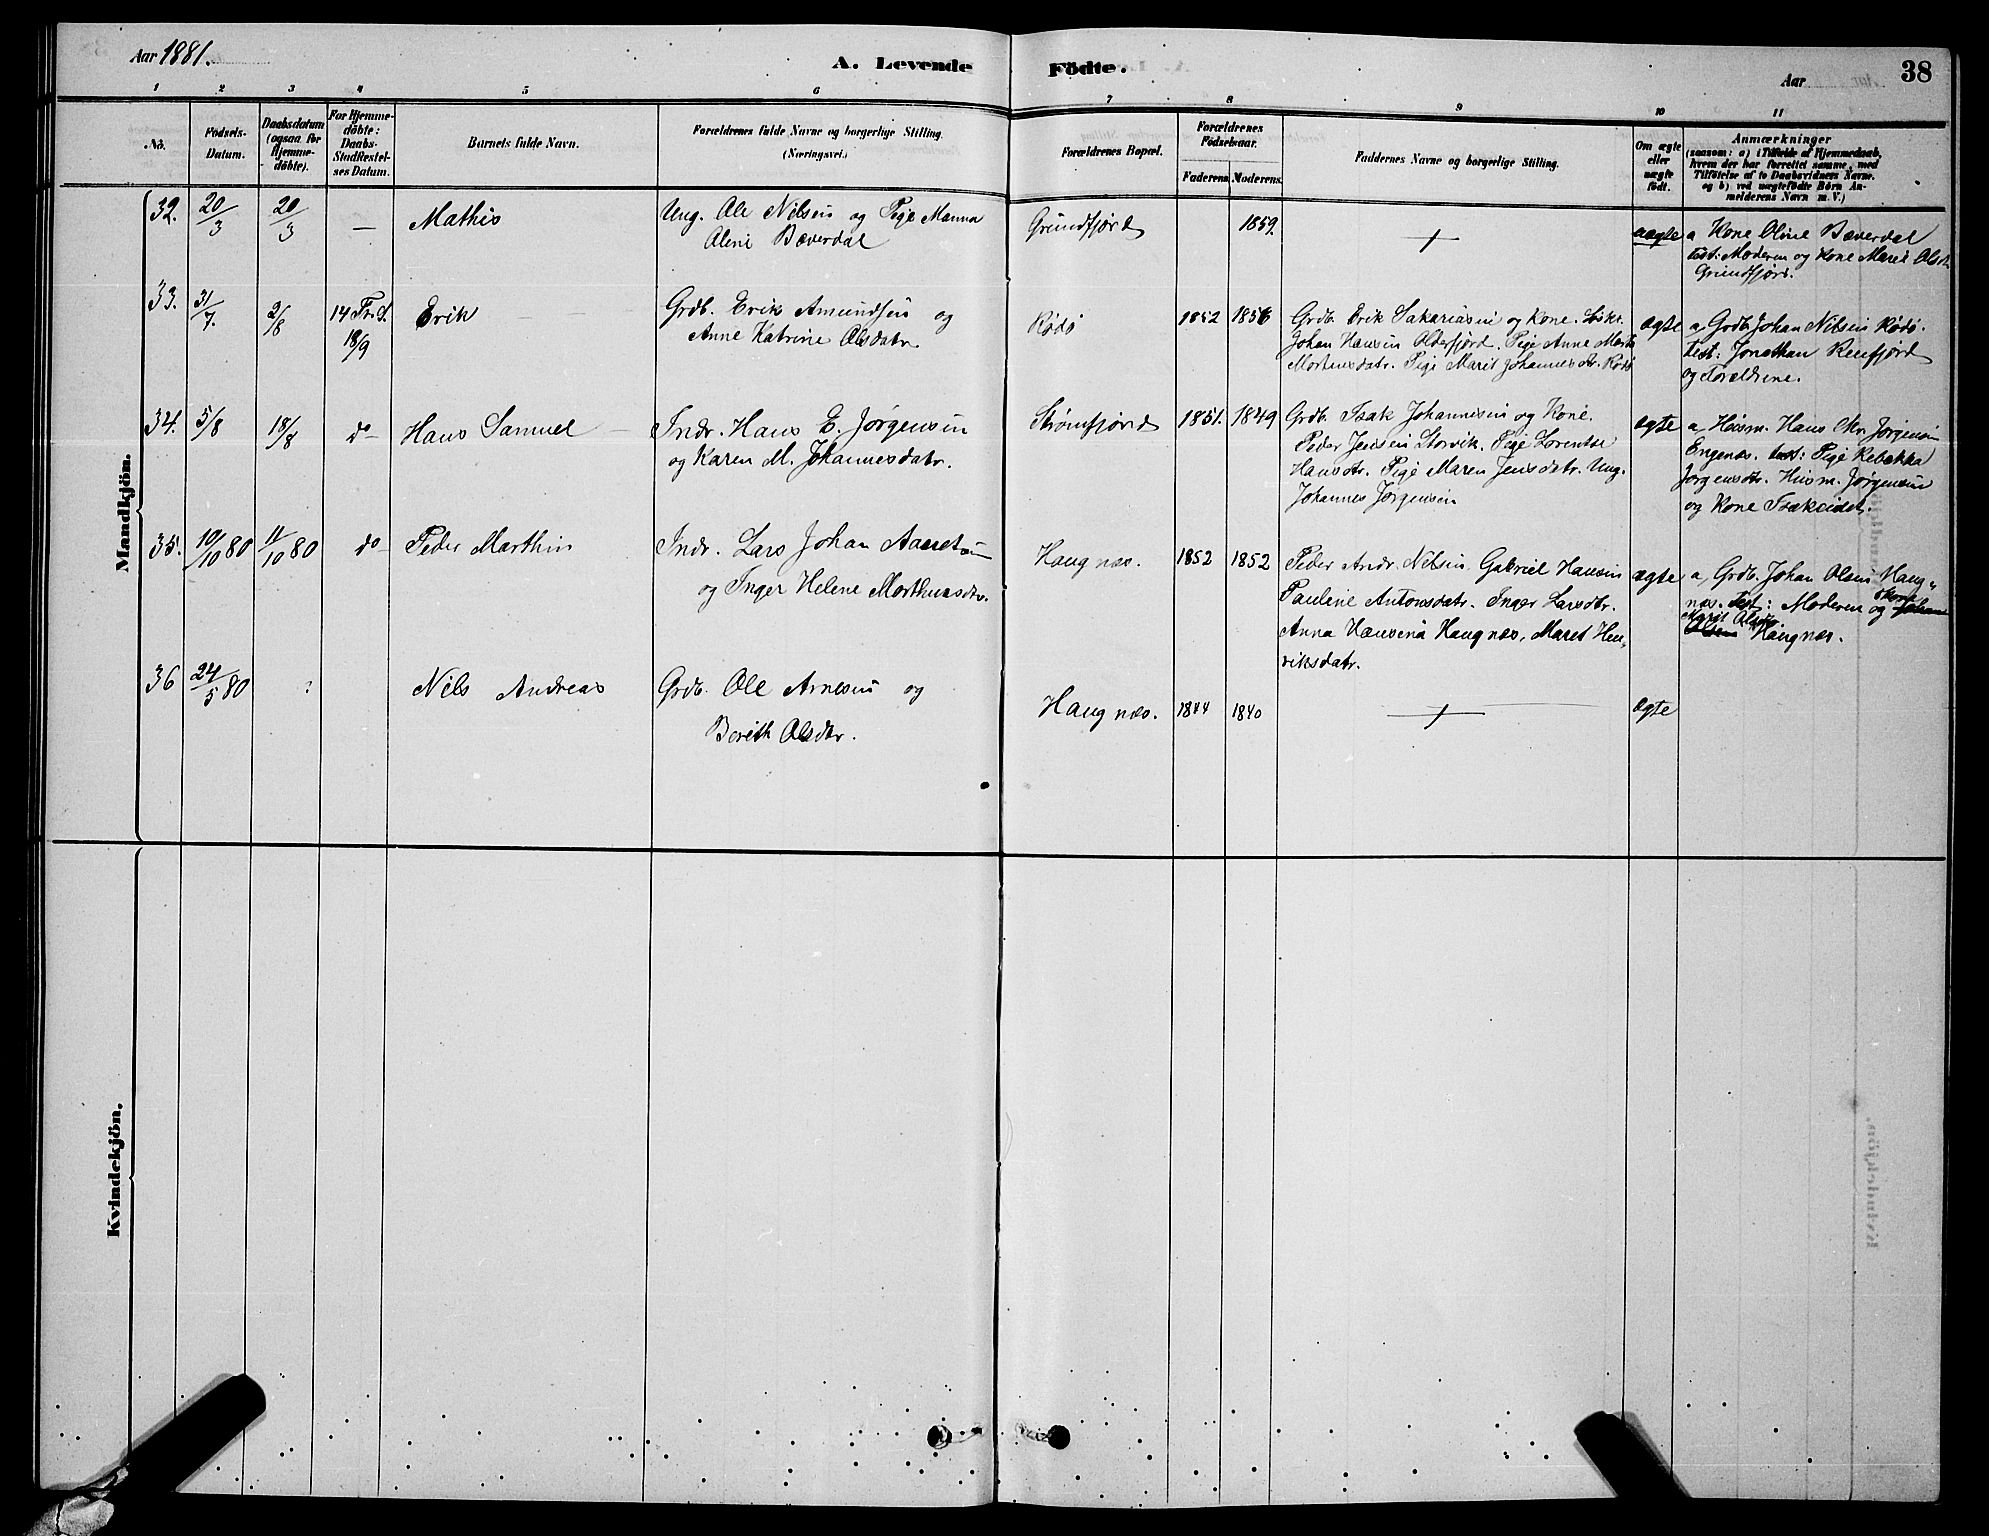 Aar 1881.
A. Levende Födte.
Aar
38
1 2 3 4 5 6 7 8 9 10 11
No.
Födsels-
Datum.
Daabsdatum
(ogsaa for
Hjemme-
döbte).
For Hjemme-
döbte:
Daabs-
Stadfestel-
ses Datum.
Barnets fulde Navn.
Forældrenes fulde Navne og borgerlige Stilling.
(Næringsvei.)
Forældrenes Bopæl.
Forældrenes
Födselsaar.
Faderens.
Moderens.
Faddernes Navne og borgerlige Stilling.
Om ægte
eller
uægte
födt.
Anmærkninger
(saasom: a) i Tilfælde af Hjemmedaab,
hvem der har forrettet samme, med
Tilföielse af to Daabsvidners Navne.
og b) ved uægtefödte Börn An-
melderens Navn m. V.)
Mandkjön.
32. 20/3 20/3 — Mathis
Ung. Ole Nilsen og Pige Manna
Oline Bæverdal
Grundfjord 1859. uægte
a Kone Oline Bæverdal
test: Moderen og Kone Marit Olsd.
Grundfjord.
33. 31/7. 2/8 14 Tr. S.
18/9
Erik
Grdb. Erik Amundsen og
Anne Katrine Olsdatr.
Rödö 1852 1856
Grdb. Erik Sakariasen og Kone.
Johan Hansen Olderfjord. Pige Anne Marth
Mortensdatr. Pige Marit Johannesdtr. Rödö
ægte
a, Grdb. Johan Nilsen Rödö.
test: Jonathan Renfjord
og Forældrene.
34. 5/8 18/8 do Hans Samuel
Indr. Hans E. Jørgensen
og Karen M. Johannesdatr.
Strømfjord 1851. 1849
Grdb. Isak Johannesen og Kone.
Peder Jensen Storvik. Pige Lorentse
Hansdtr. Pige Maren Jensdatr. Ung.
Johannes Jørgensen
ægte
a, Husm. Hans Chr. Jørgensen
Engenæs. test: Pige Rebekka
Jørgensdtr. Husm. Jørgensen
og Kone Isakeidet.
35. 10/10 80 11/10 80 do Peder Marthin
Indr. Lars Johan
og Inger Helene Morthensdtr.
Haugnæs. 1852 1852
Peder Andr. Nilsen, Gabriel Hansen
Pauline Antonsdatr. Inger Larsdtr.
Anna Hansena Haugnæs, Maret Hen-
riksdatr.
ægte
a, Grdb. Johan Olsen Haug-
næs. Test: Moderen og Kone Johan
Marit Olsdtr
Olsens Haugnæs.
36 24/5 80 ? Nils Andreas
Grdb. Ole Arnesen og
Berith Olsdtr.
Haugnæs. 1844 1840 ægte
Kvindekjön.